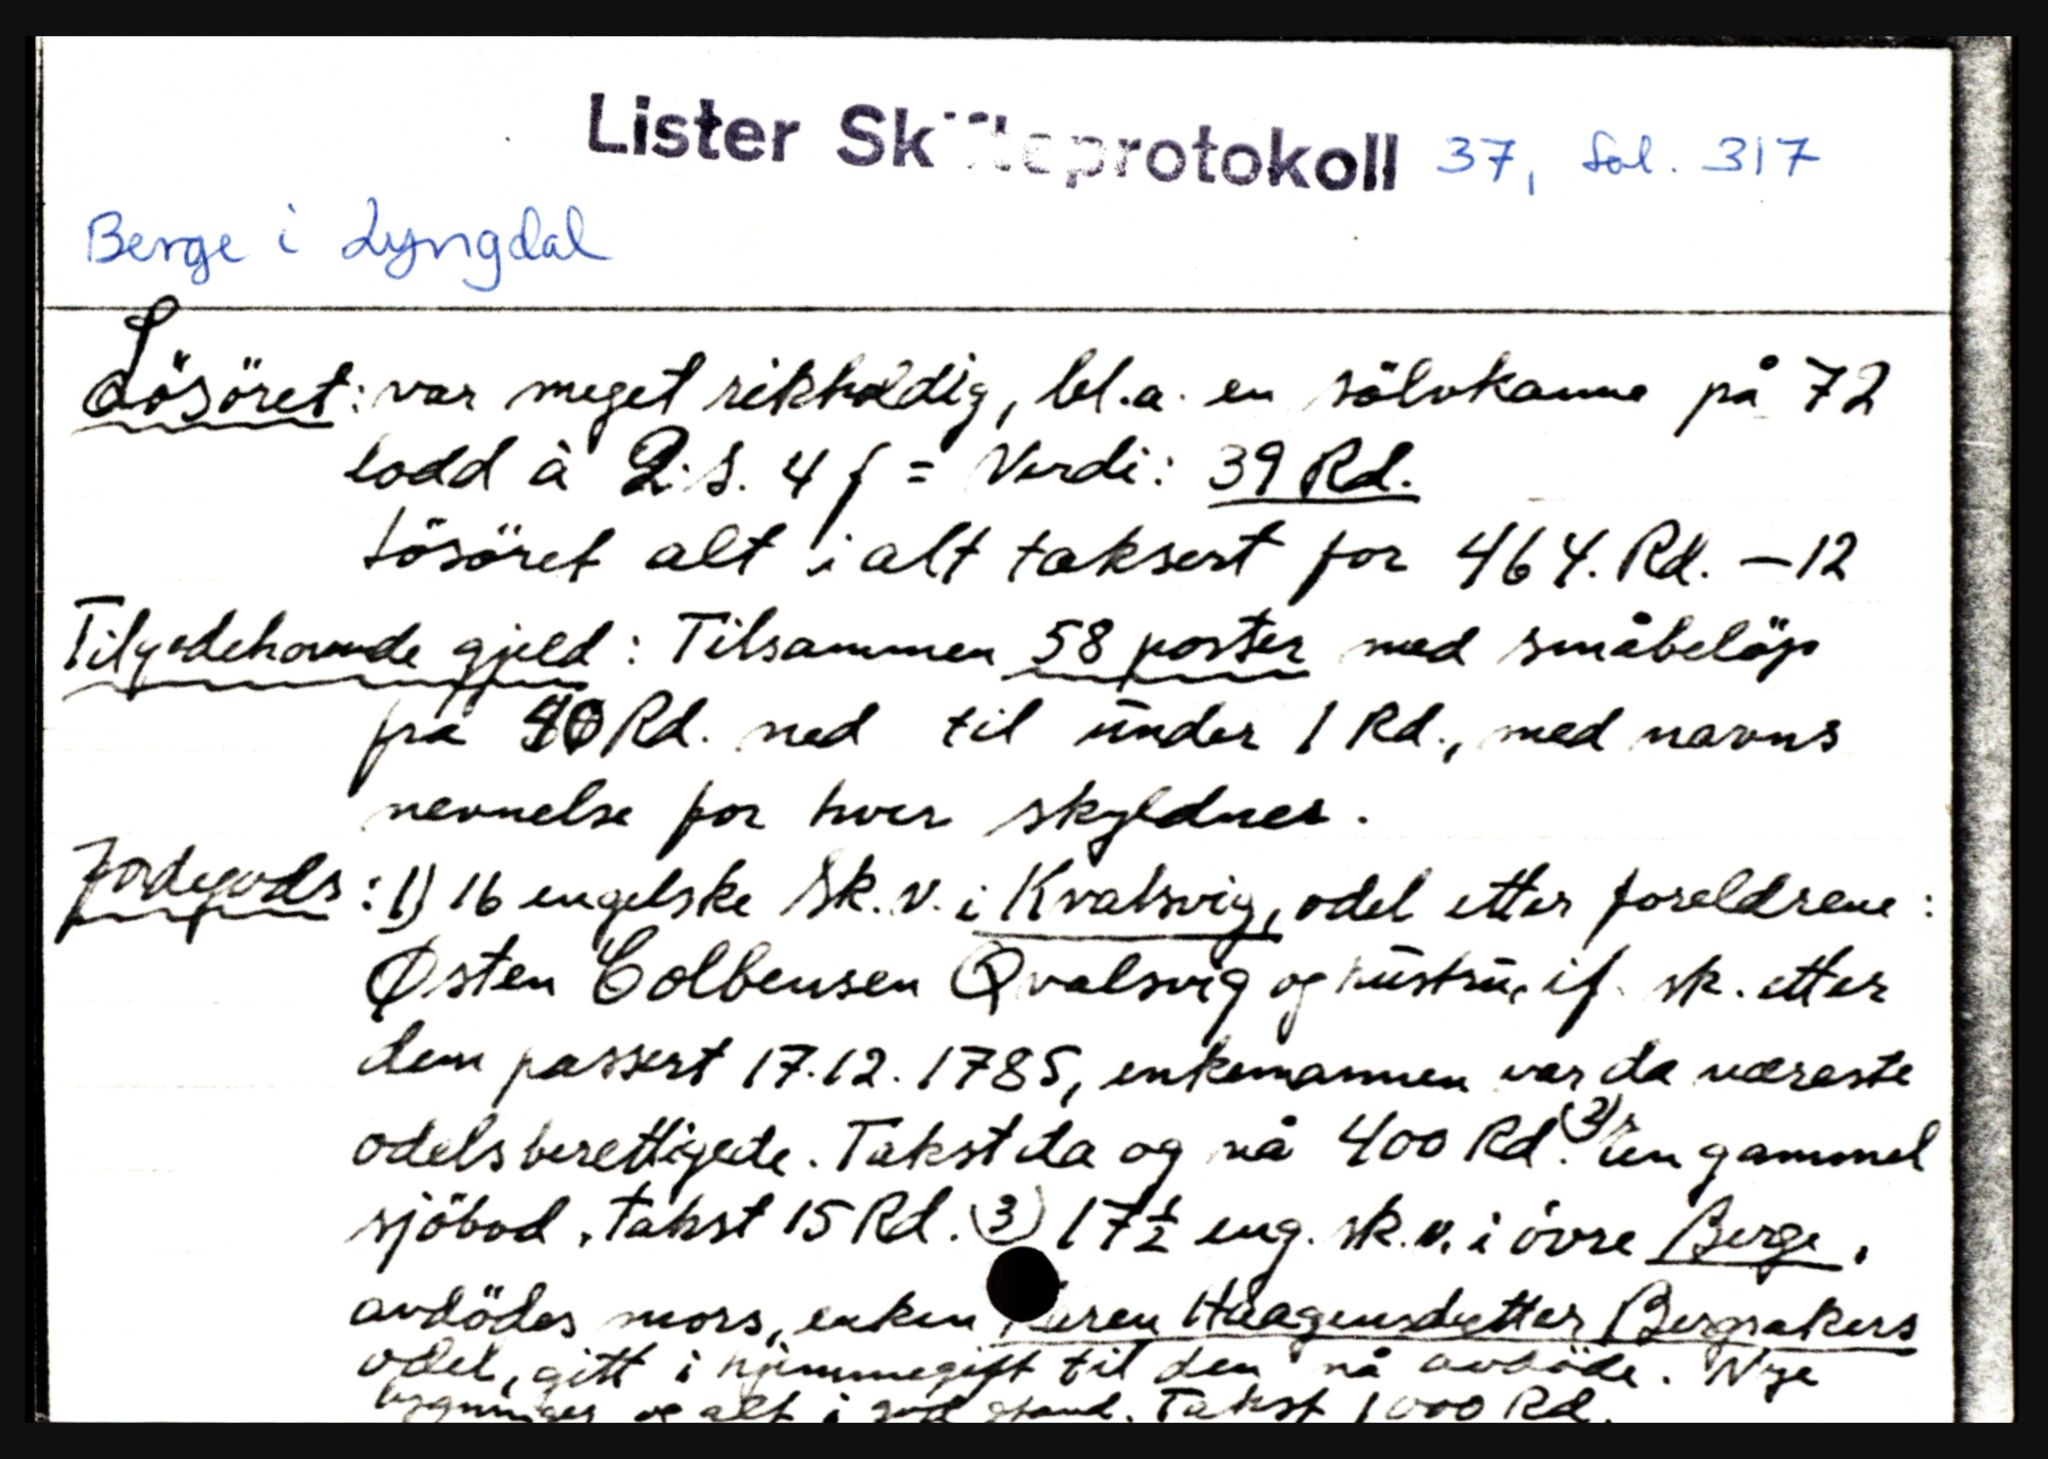 Lister Skifteprotokoll 37, fol. 317
Berge i Lyngdal
Lösöret: var meget rikholdig, bl.a. en sölvkanne på 72
lodd à 2.S. 4 f = Verdi: 39 Rd.
Lösöret alt i alt taksert for 464. Rd. – 12
Tilgodehavende gjeld: Tilsammen 58 poster med småbelöp
fra 40 Rd. ned til under 1 Rd., med navns
nevnelse for hver skyldner.
Jordegods: 1) 16 engelske Sk. v. i Kvalsvig, odel etter foreldrene:
Østen Colbensen Qvalsvig og hustru, if. sk. etter
dem passert 17.12.1785, enkemannen var da næreste
odelsberettigede. Takst da og nå 400 Rd. 2) en gammel
sjöbod. Takst 15 Rd. (3) 17½ eng. sk. v. i övre Berge,
avdödes mors, enken Karen Haagensdatter Bergsakers
odel, gitt i hjemmegift til den nå avdöde. Nye
bygninger og alt i god stand. Takst 1000 Rd.